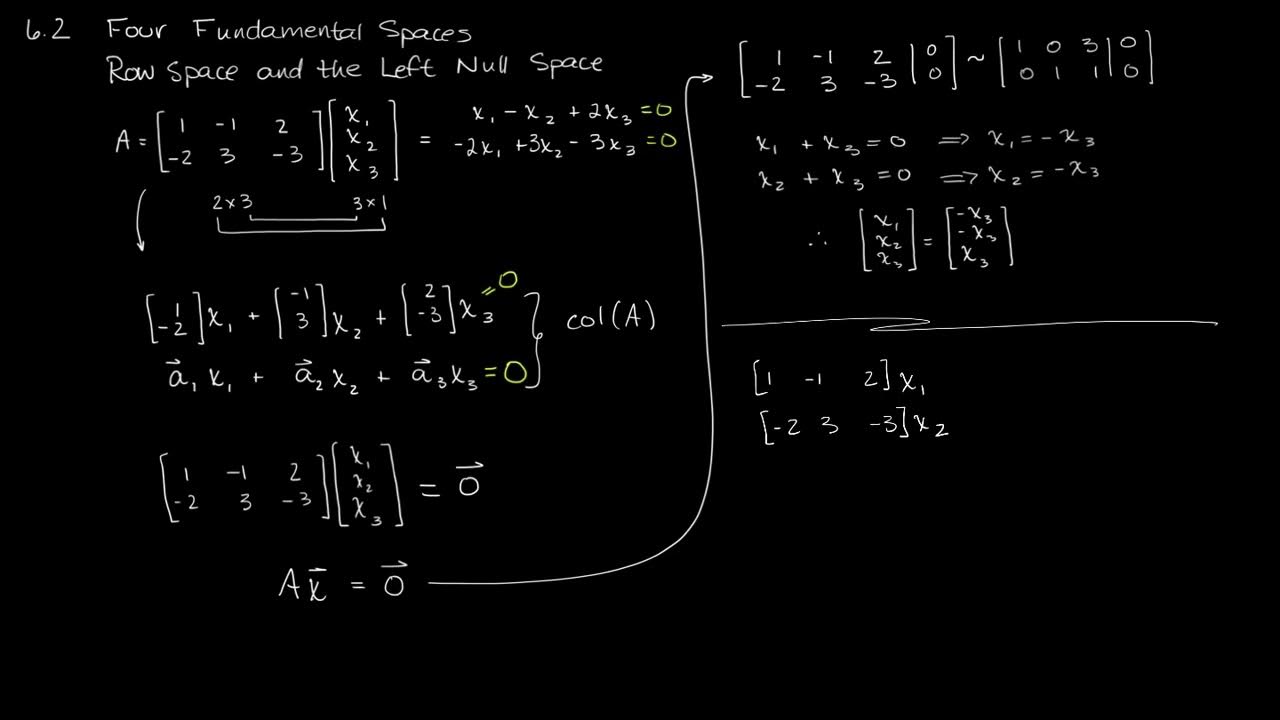 6.2 Four Fundamental Spaces
Row Space and the Left Null Space
A = [1 -1 2; -2 3 -3] [x₁; x₂; x₃] = x₁ - x₂ + 2x₃ = 0
-2x₁ + 3x₂ - 3x₃ = 0
2×3 3×1
[1; -2] x₁ + [-1; 3] x₂ + [2; -3] x₃ = 0 } col(A)
a⃗₁ x₁ + a⃗₂ x₂ + a⃗₃ x₃ = 0
[1 -1 2; -2 3 -3] [x₁; x₂; x₃] = 0⃗
A x⃗ = 0⃗
[1 -1 2 | 0; -2 3 -3 | 0] ~ [1 0 3 | 0; 0 1 1 | 0]
x₁ + x₃ = 0 ⟹ x₁ = -x₃
x₂ + x₃ = 0 ⟹ x₂ = -x₃
∴ [x₁; x₂; x₃] = [-x₃; -x₃; x₃]
[1 -1 2] x₁
[-2 3 -3] x₂